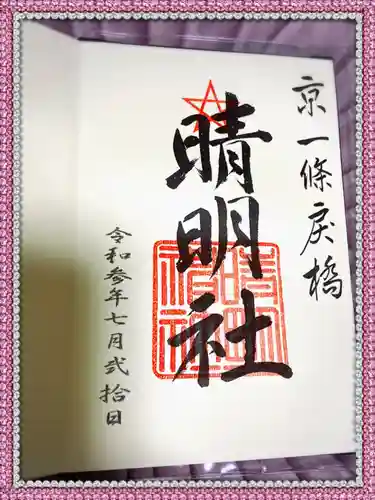 京一條戻橋
晴明社
令和参年七月弐拾日
晴明
神社